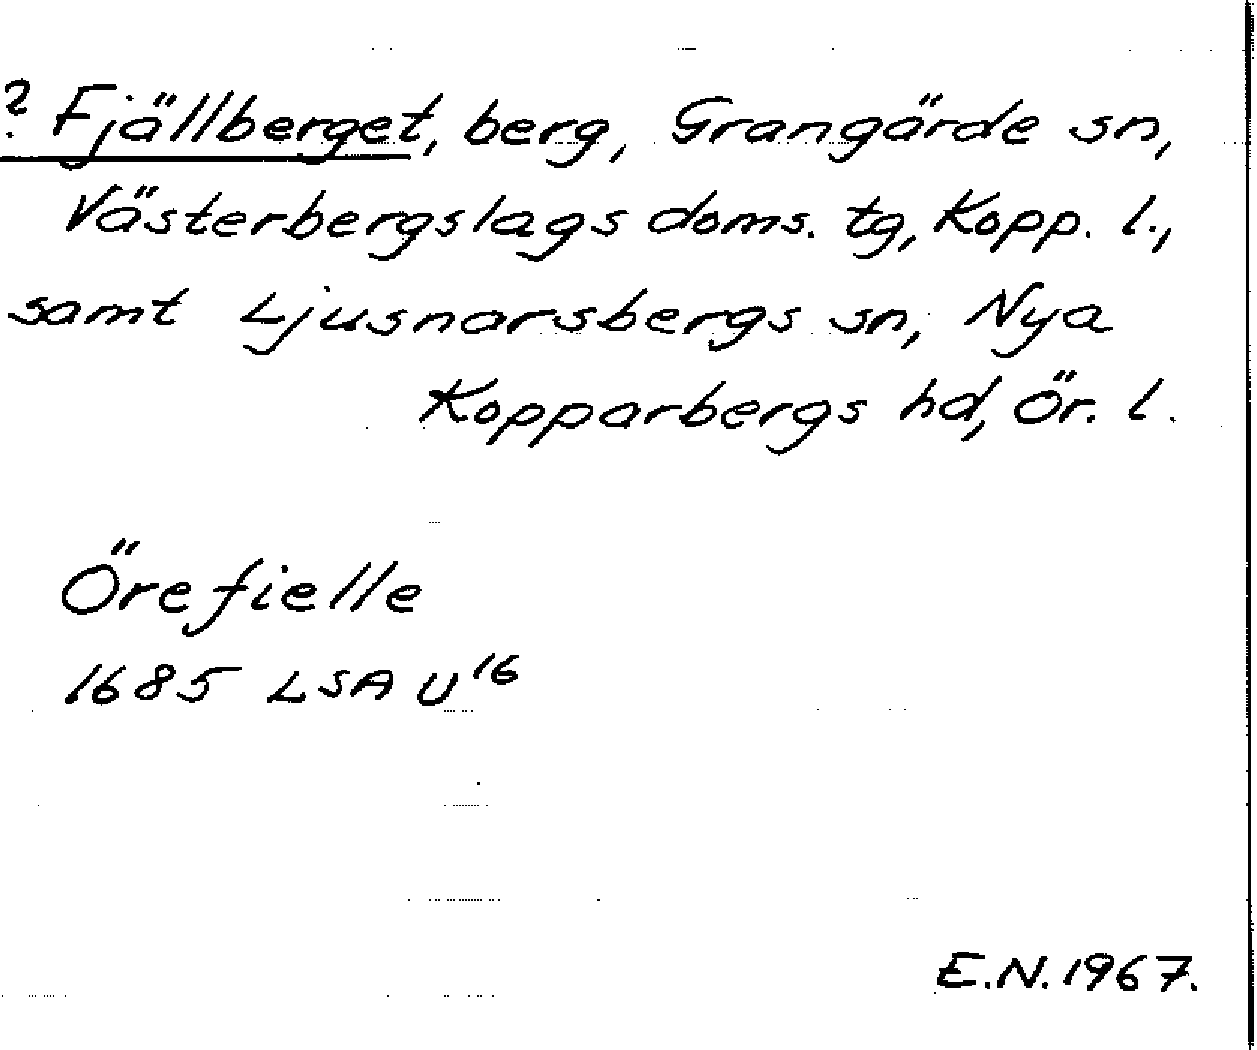 ? Fjällberget, berg, Grangärde sn,
Västerbergslags doms. tg, Kopp. l.,
samt Ljusnarsbergs sn, Nya
Kopparbergs hd, Ör. l.
Örefielle
1685 LSA U¹⁶
E.N. 1967.